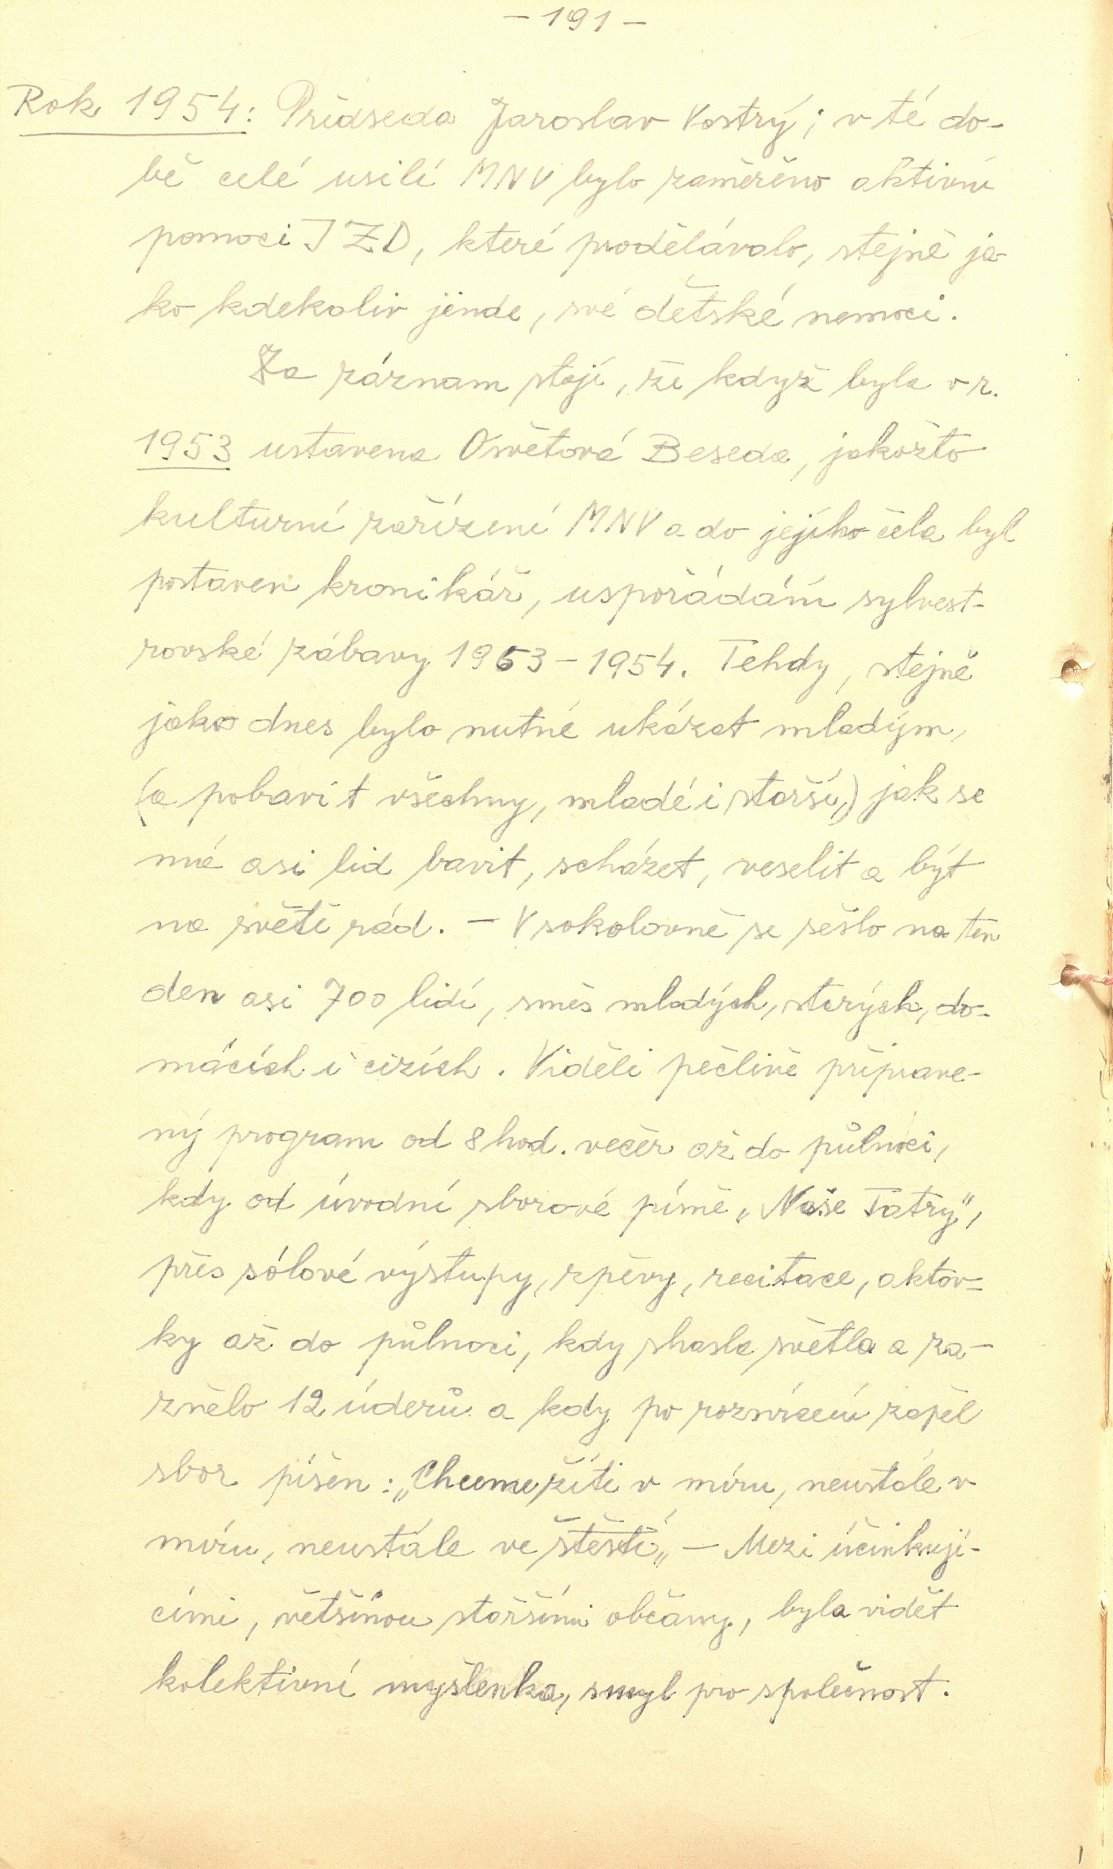 - 191 -
Rok 1954: Předseda Jaroslav Vostrý; v té do-
bě celé usilí MNV bylo zaměřeno aktivní
pomoci JZD, které prodělávalo, stejně ja-
ko kdekoliv jinde, své dětské nemoci.
Za záznam stojí, že když byla v r.
1953 ustavena Osvětová Beseda, jakožto
kulturní zařízení MNV a do jejího čela byl
postaven kronikář, uspořádání sylvest-
rovské zábavy 1953 - 1954. Tehdy, stejně
jako dnes bylo nutné ukázat mladým,
(a pobavit všechny, mladé i starší,) jak se
má asi lid bavit, scházet, veselit a být
na světě rád. - V sokolovně se sešlo na ten
den asi 700 lidí, směs mladých, starých, do-
mácích i cizích. Viděli pečlivě připrave-
ný program od 8 hod. večer až do půlnoci,
kdy od úvodní sborové písně „Naše Tatry",
přes sólové výstupy, zpěvy, recitace, aktov-
ky až do půlnoci, kdy shasla světla a za-
znělo 12 úderů a kdy po rozsvícení zapěl
sbor píseň: „Chceme žíti v míru, neustále v
míru, neustále ve štěstí„ - Mezi účinkují-
cími, většinou staršími občany, byla vidět
kolektivní myšlenka, smysl pro společnost.